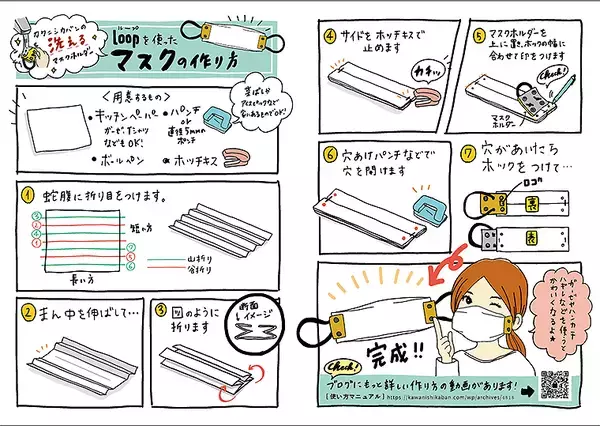 カワニシカバンの
洗える
マスクホルダー
ループ
loopを使った
マスクの作り方
<用意するもの>
・キッチンペーパー
ガーゼ、Tシャツ
などもOK!
・ボールペン
・パンチ
or
直径5mm
ポンチ
・ホッチキス
① 蛇腹に折り目をつけます。
③
②
④
①
⑦
⑤
⑥
短い方
長い方
山折り
谷折り
② まん中を伸ばして…
③ のように
折ります
断面
イメージ
④ サイドをホッチキスで
止めます
カチッ
⑤ マスクホルダーを
上に置き、ホックの幅に
合わせて印をつけます
Check!
マスク
ホルダー
⑥ 穴あけパンチなどで
穴を開けます
⑦ 穴があいたら
ホックをつけて…
ロゴが
裏
表
完成!!
ガーゼやハンカチ
ハギレなどを使うと
かわいくなるよ★
Check!
ブログにもっと詳しい作り方の動画があります!
[使い方マニュアル] https://kawanishikaban.com/wp/archives/